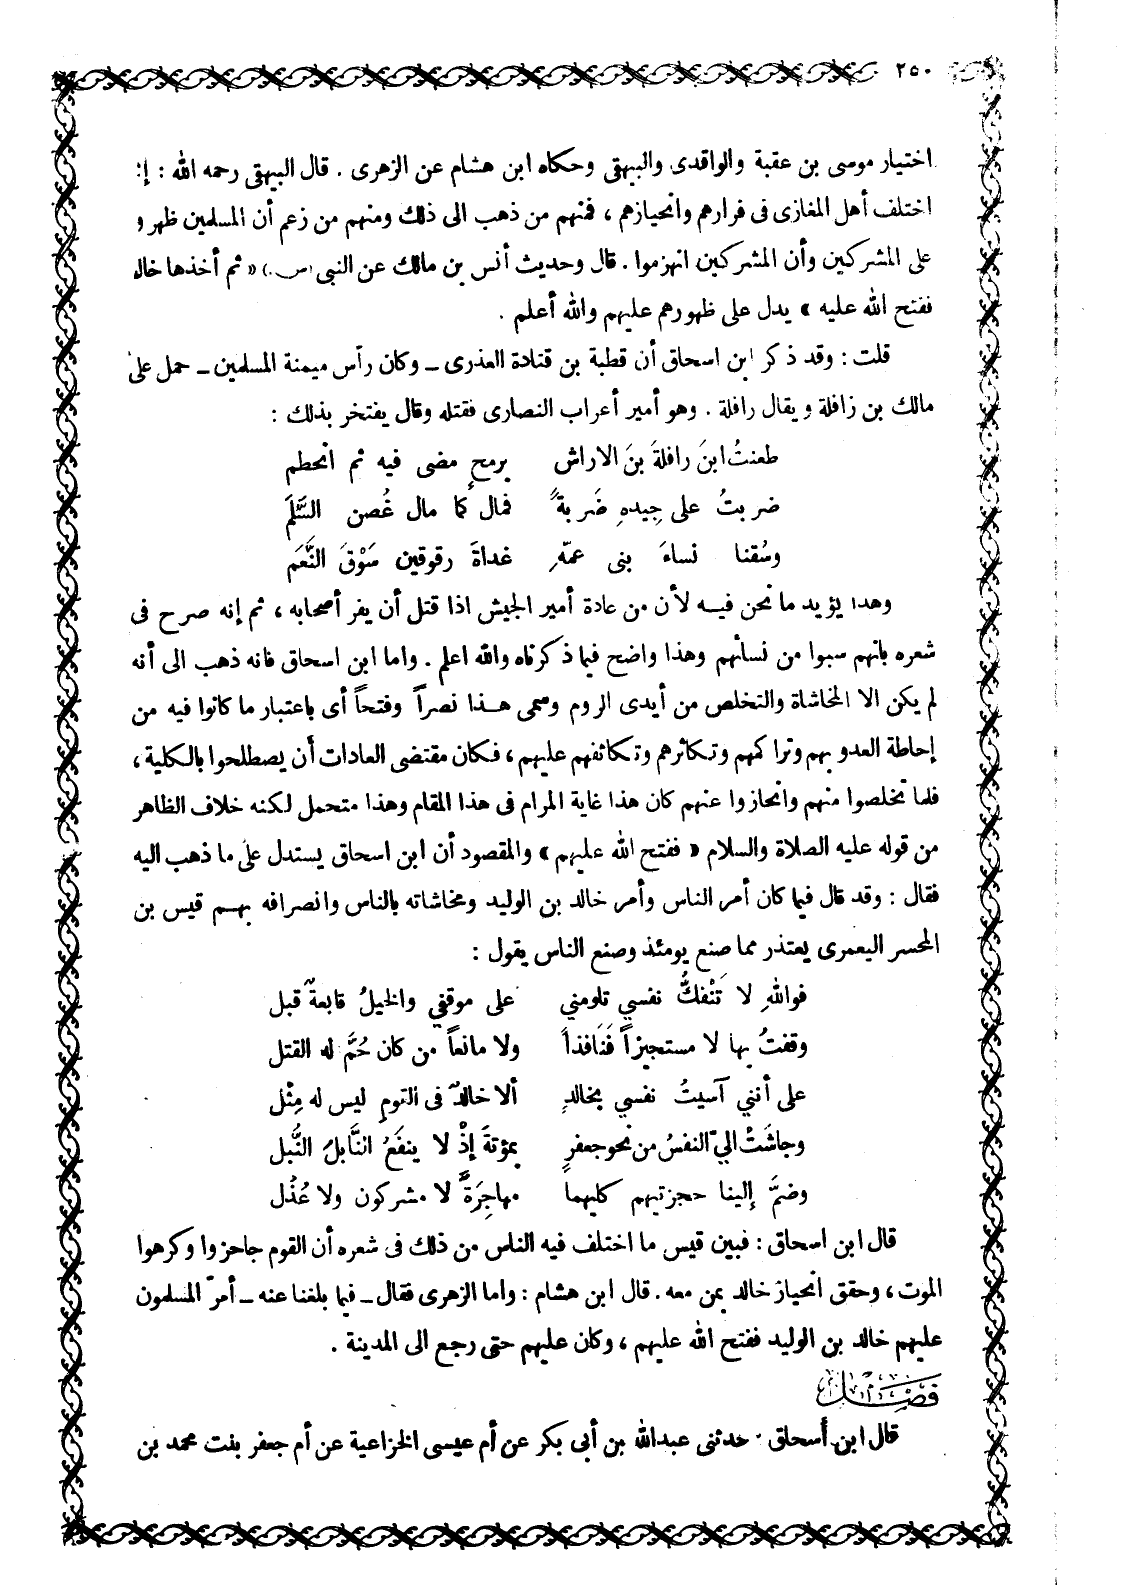 ٢٥٠
اختيار موسى بن عقبة والواقدى والبيهقى وحكاه ابن هشام عن الزهرى . قال البيهقى رحمه الله : إ:
اختلف أهل المغازى فى فرارهم وانحيازهم ، فمنهم من ذهب الى ذلك ومنهم من زعم أن المسلمين ظهرو
على المشركين وأن المشركين انهزموا . قال وحديث أنس بن مالك عن النبى (س) « ثم أخذها خالد
ففتح الله عليه » يدل على ظهورهم عليهم والله أعلم .
قلت : وقد ذكر ابن اسحاق أن قطبة بن قتادة العذرى ــ وكان رأس ميمنة المسلمين ــ حمل على
مالك بن زافلة ويقال رافلة . وهو أمير أعراب النصارى فقتله وقال يفتخر بذلك :
طعنتُ ابنَ رافلةَ بنَ الاراش    برمحٍ مضى فيه ثم انحطم
ضربتُ على جِيدهِ ضَربةً    فمال كما مال غُصن السَّلَم
وسُقنا نساءَ بنى عمّهِ    غداةَ رقوقين سَوْقَ النَّعَم
وهدا يؤيد ما نحن فيه لأن من عادة أمير الجيش اذا قتل أن يفر أصحابه ، ثم إنه صرح فى
شعره بانهم سبوا من نسائهم وهذا واضح فيما ذكرناه والله اعلم . واما ابن اسحاق فانه ذهب الى أنه
لم يكن الا المخاشاة والتخلص من أيدى الروم وسمى هذا نصراً وفتحاً أى باعتبار ما كانوا فيه من
إحاطة العدو بهم وتراكمهم وتكاثرهم وتكاثفهم عليهم ، فكان مقتضى العادات أن يصطلحوا بالكلية ،
فلما تخلصوا منهم وانحازوا عنهم كان هذا غاية المرام فى هذا المقام وهذا متحمل لكنه خلاف الظاهر
من قوله عليه الصلاة والسلام « ففتح الله عليهم » والمقصود أن ابن اسحاق يستدل على ما ذهب اليه
فقال : وقد قال فيما كان أمر الناس وأمر خالد بن الوليد ومخاشاته بالناس وانصرافه بهم قيس بن
المحسر اليعمرى يعتذر مما صنع يومئذ وصنع الناس يقول :
فواللهِ لا تَنْفكُّ نفسي تلومني    على موقفي والخيلُ قابعةٌ قبل
وقفتُ بها لا مستجيزاً فَنَافذاً    ولا مانعاً من كان حُمَّ له القتل
على أنني آسيتُ نفسي بخالدٍ    ألا خالدٌ فى القوم ليس له مِثْل
وجاشَتْ اليّ النفسُ من نحو جعفرٍ    بمؤتةَ إذْ لا ينفَعُ النَّابلَ النُّبل
وضمَّ إلينا حجزتيهم كليهما    مهاجِرَةٌ لا مشركون ولا عُذُل
قال ابن اسحاق : فبين قيس ما اختلف فيه الناس من ذلك فى شعره أن القوم جاحزوا وكرهوا
الموت ، وحقق انحياز خالد بمن معه . قال ابن هشام : واما الزهرى فقال ــ فيما بلغنا عنه ــ أمرّ المسلمون
عليهم خالد بن الوليد ففتح الله عليهم ، وكان عليهم حتى رجع الى المدينة .
فصل
قال ابن أسحاق . حدثنى عبدالله بن أبى بكر عن أم عيسى الخزاعية عن أم جعفر بنت محمد بن